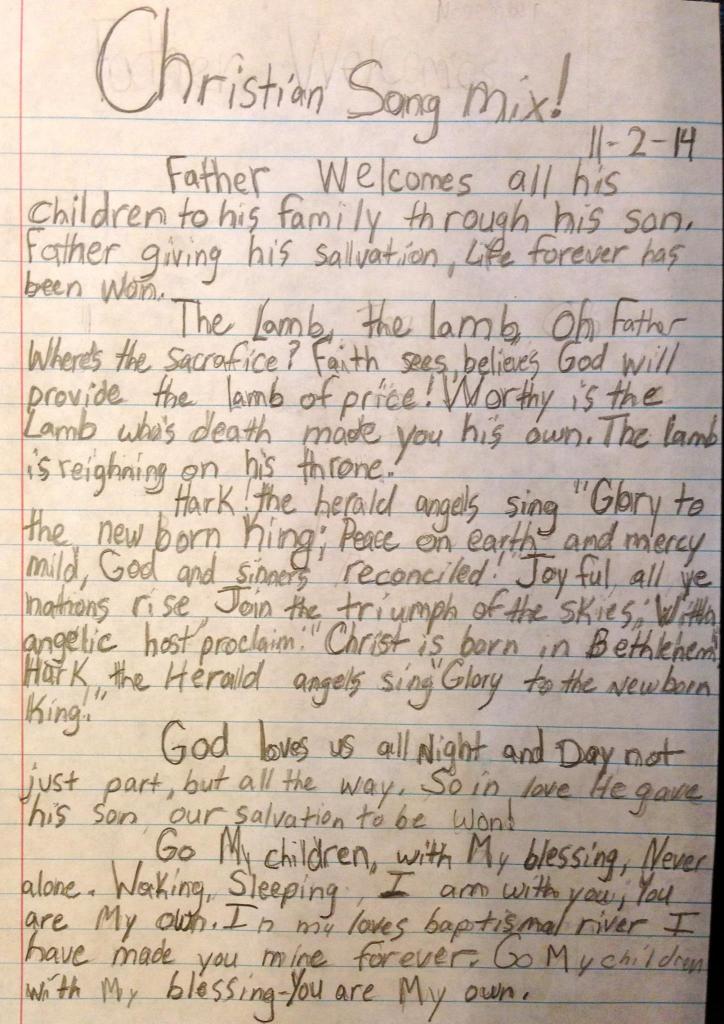 Christian Song mix!
11-2-14
Father Welcomes all his
children to his family through his son.
Father giving his sallvation, Life forever has
been won.
The Lamb, the lamb, Oh Father
Where's the sacrafice? Faith sees, believes God will
provide the lamb of price! Worthy is the
Lamb who's death made you his own. The lamb
is reighning on his throne!
Hark! the herald angels sing "Glory to
the new born King; Peace on earth and mercy
mild, God and sinners reconciled!" Joyful, all ye
nations rise Join the triumph of the skies; With
angelic host proclaim: "Christ is born in Bethlehem!
Hark, the Herald angels sing "Glory to the Newborn
King!"
God loves us all Night and Day not
just part, but all the way. So in love He gave
his son our salvation to be won!
Go My children, with My blessing, Never
alone. Waking, Sleeping, I am with you; You
are My own. In my loves baptismal river I
have made you mine forever. Go My children
with My blessing-You are My own.